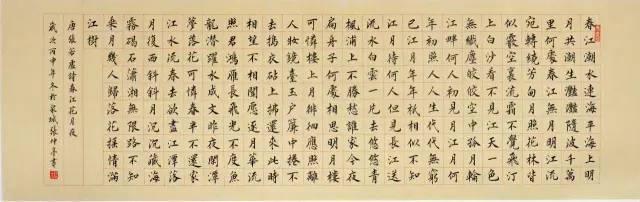 春江潮水連海平海上明
月共潮生灩灩隨波千萬
里何處春江無月明江流
宛轉繞芳甸月照花林皆
似霰空裏流霜不覺飛汀
上白沙看不見江天一色
無纖塵皎皎空中孤月輪
江畔何人初見月江月何
年初照人人生代代無窮
已江月年年祇相似不知
江月待何人但見長江送
流水白雲一片去悠悠青
楓浦上不勝愁誰家今夜
扁舟子何處相思明月樓
可憐樓上月徘徊應照離
人妝鏡臺玉戶簾中捲不
去搗衣砧上拂還來此時
相望不相聞願逐月華流
照君鴻雁長飛光不度魚
龍潛躍水成文昨夜閒潭
夢落花可憐春半不還家
江水流春去欲盡江潭落
月復西斜斜月沉沉藏海
霧碣石瀟湘無限路不知
乘月幾人歸落花搖情滿
江樹
唐張若虛詩春江花月夜
歲次丙申年冬於泉城張仲亭書